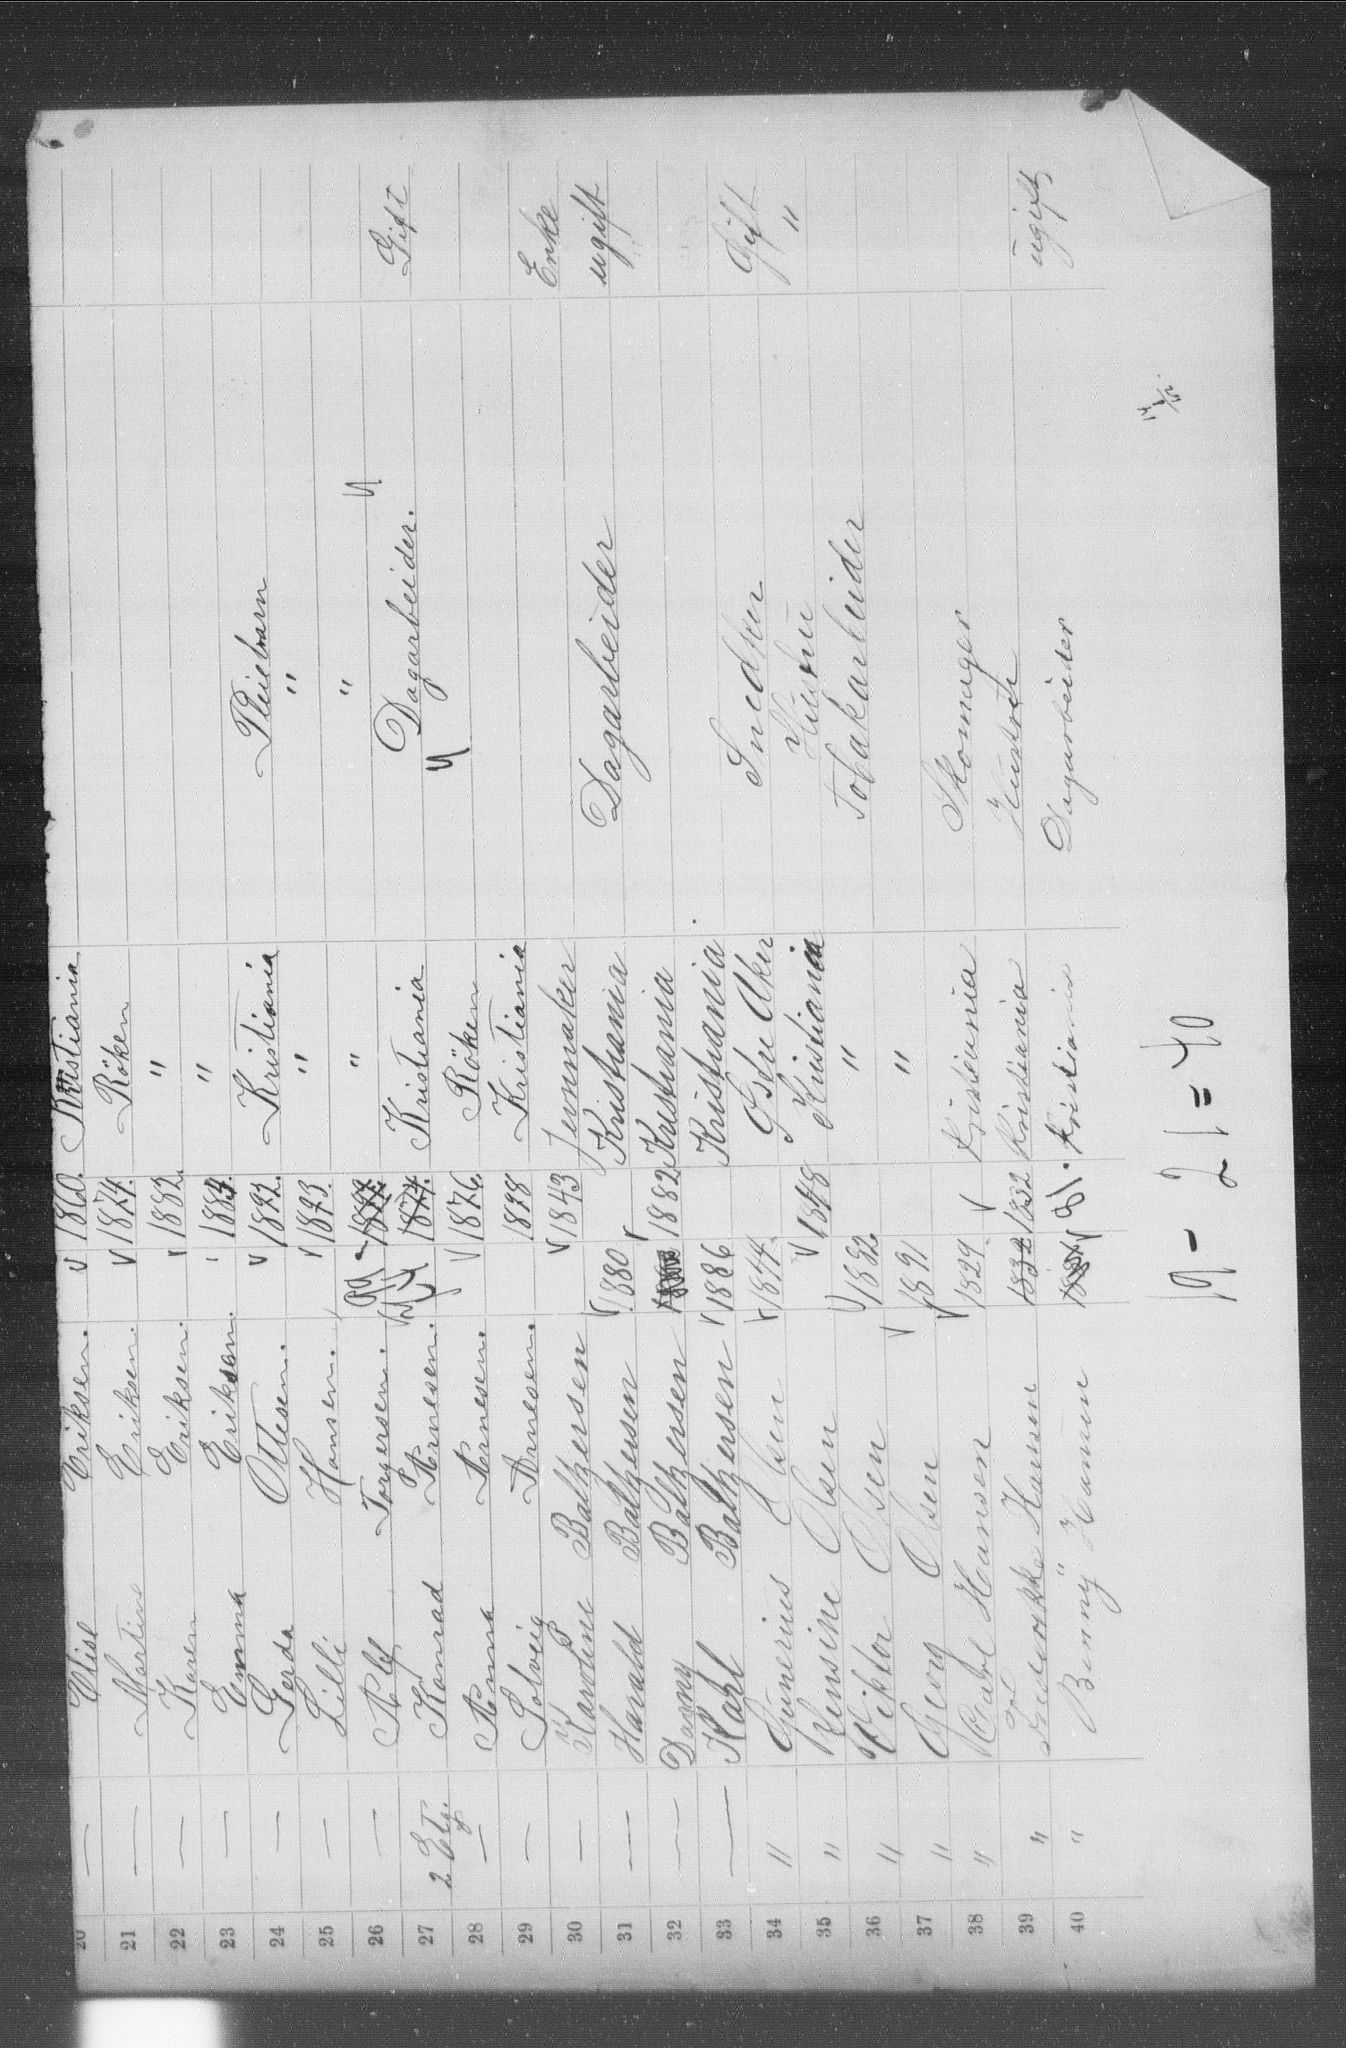 20 — Elise Eriksen. v 1860. Kristiania
21 — Martine Eriksen v 1874. Röken
22 — Karen Eriksen. v 1882. "
23 — Emma Eriksen. 1884. "
24 — Gerda Ottesen. v 1892. Kristiania Pleiebarn
25 — Lilli Hansen. v 1893. " "
26 — Alf Torgersen. 99 " "
27 2 Etg. Konrad Arnesen. 74 1874. Kristiania Dagarbeider. Gift
28 — Anna Arnesen. v 1876. Röken
29 — Solveig Arnesen. 1898 Kristiania
30 — Karoline Baltzersen v 1843 Jevnaker Enke
31 — Harald Baltzersen v 1880 Kristiania Dagarbeider ugift
32 — Dagny Baltzersen v 1882 Kristiania
33 — Karl Baltzersen v 1886 Kristiania.
34 " Gunerius Olsen v 1844. Aker Snedker Gift
35 " Olsen v 1848 Kristiania Hustru "
36 " Viktor Olsen v 1882 " Tobakarbeider
37 " Georg Olsen v 1891 "
38 " Karl Hansen v 1829. v Kristiania Skomager
39 " Fredrikke Hansen 1832 1832 Kristiania Hustru
40 " Benny Hansen 81. Kristiania Dagarbeider ugift
19 - 21 = 40